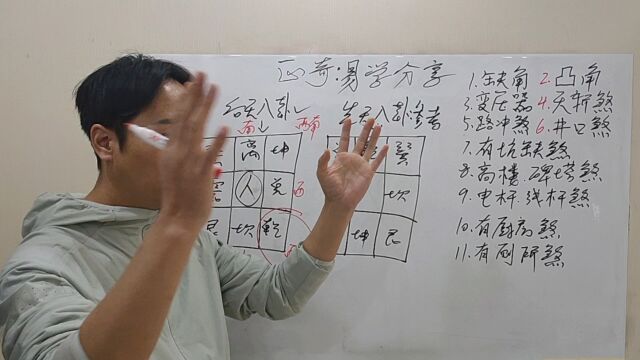 正奇易学分享
后天八卦
先天八卦参考
南
西南
离 坤
人 兑
西
坎 乾
巽
坎
坤 艮
1.缺角 2.凸角
3.变压器 4.天斩煞
5.路冲煞 6.井口煞
7.有坑缺煞
8.高楼 碑塔煞
9.电杆 线杆煞
10.有厨病煞
11.有刑阴煞